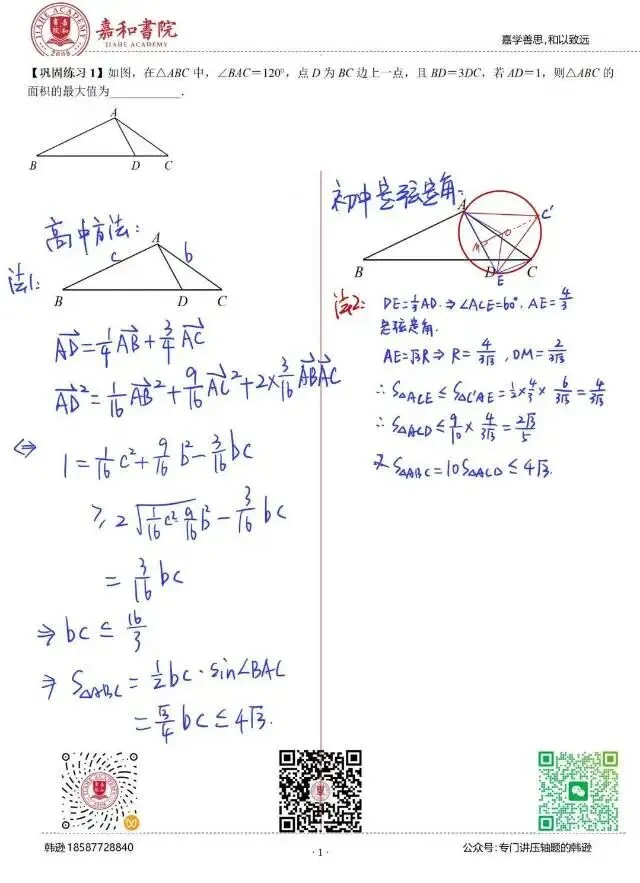 嘉和書院
JIAHE ACADEMY
嘉学善思,和以致远
【巩固练习 1】如图，在△ABC 中，∠BAC＝120°，点 D 为 BC 边上一点，且 BD＝3DC，若 AD＝1，则△ABC 的
面积的最大值为____________.
A
B D C
高中方法:
法1:
A
c b
B D C
AD→=1/4AB→+3/4AC→
AD→²=1/16AB→²+9/16AC→²+2×3/16AB→AC→
⇔ 1=1/16c²+9/16b²-3/16bc
≥2√(1/16c²·9/16b²)-3/16bc
=3/16bc
⇒ bc≤16/3
⇒ S△ABC=1/2bc·sin∠BAC
=√3/4bc≤4√3.
初中定弦定角.
A C'
M O
B D C
E
法2: DE=1/3AD.⇒∠ACE=60°.AE=4/3
定弦定角.
AE=√3R⇒R=4/3√3,OM=2/3√3
∴S△ACE≤S△C'AE=1/2×4/3×6/3√3=4/3√3
∴S△ACD≤9/10×4/3√3=2√3/5
又S△ABC=10S△ACD≤4√3.
韩逊 18587728840
· 1 ·
公众号: 专门讲压轴题的韩逊